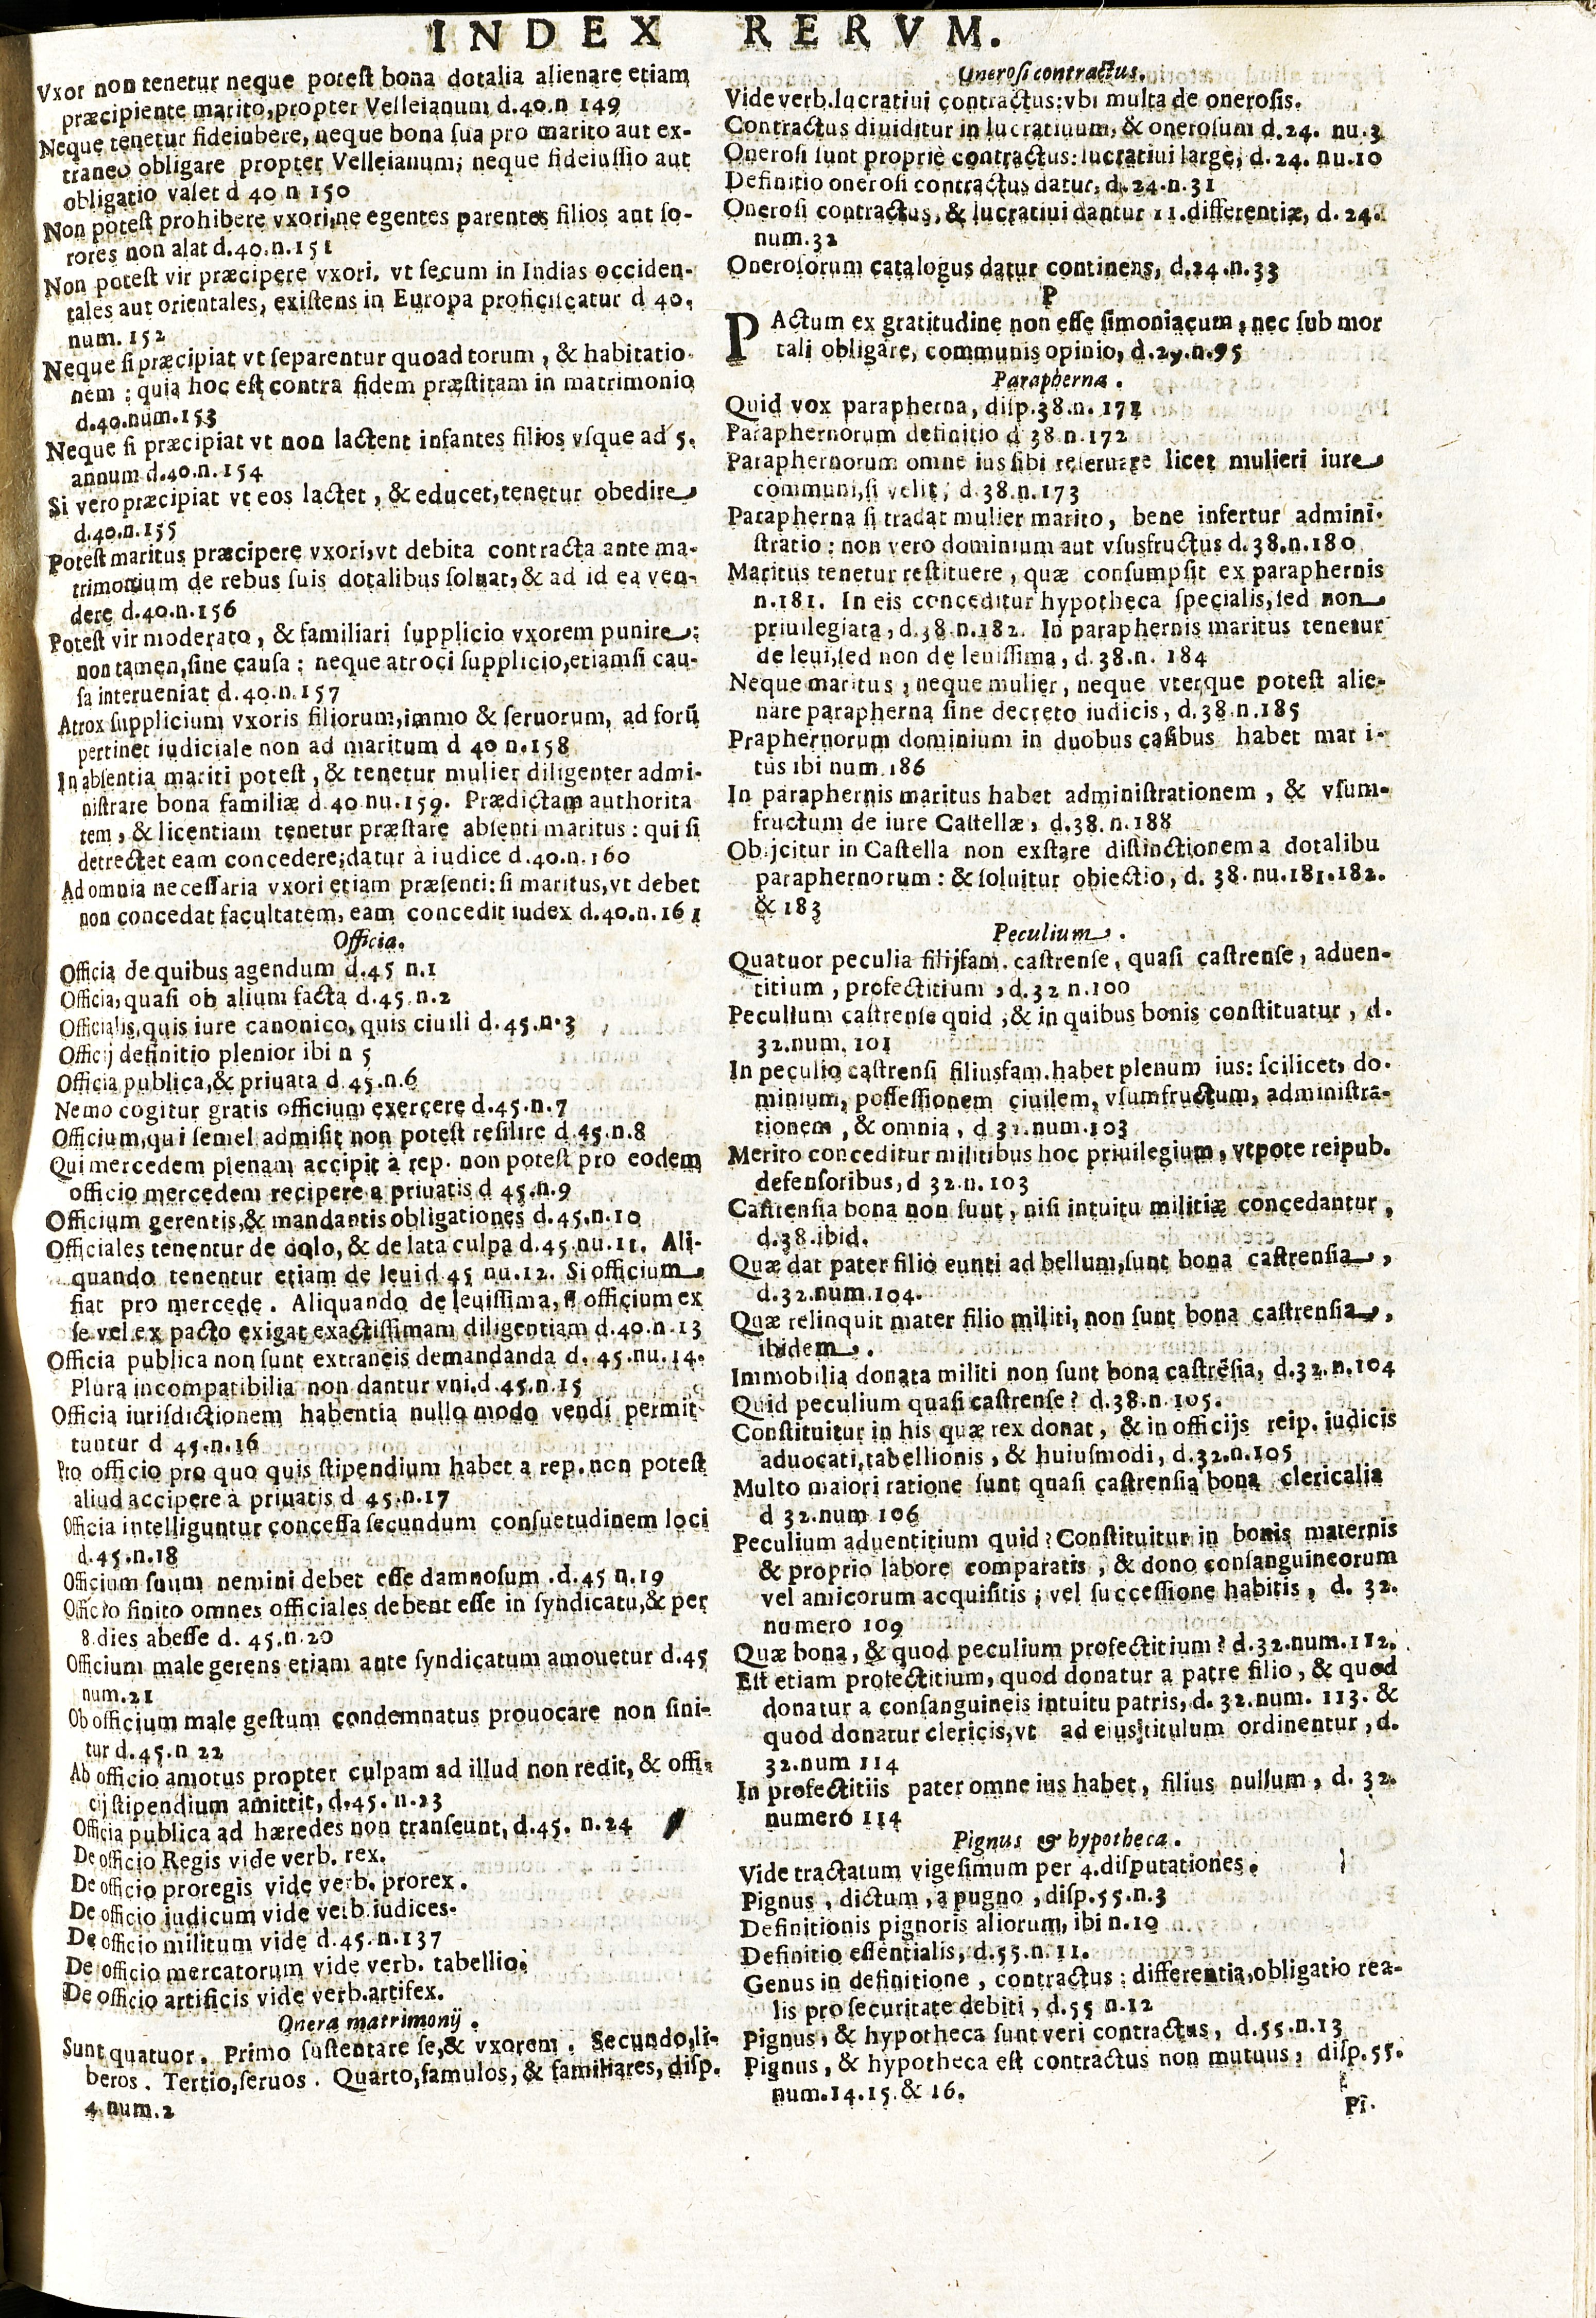 INDEX RERVM.
Vxor non tenetur neque poteſt bona dotalia alienare etiam
præcipiente marito, propter Velleianum d.40.n 149
Neque tenetur fideiubere, neque bona ſua pro marito aut ex-
traneo obligare propter Velleianum; neque fideiuſſio aut
obligatio valet d 40 n 150
Non poteſt prohibere vxori, ne egentes parentes filios aut ſo-
rores non alat d.40.n.151
Non poteſt vir præcipere vxori, vt ſecum in Indias occiden-
tales aut orientales, exiſtens in Europa proficiſcatur d 40.
num. 152
Neque ſi præcipiat vt ſeparentur quoad torum, & habitatio-
nem; quia hoc eſt contra fidem præſtitam in matrimonio
d.40.num.153
Neque ſi præcipiat vt non lactent infantes filios vſque ad 5.
annum d.40.n.154
Si vero præcipiat vt eos lactet, & educet, tenetur obedire
d.40.n.155
Poteſt maritus præcipere vxori, vt debita contracta ante ma-
trimonium de rebus ſuis dotalibus ſoluat, & ad id ea ven-
dere d.40.n.156
Poteſt vir moderato, & familiari ſupplicio vxorem punire:
non tamen, ſine cauſa: neque atroci ſupplicio, etiamſi cau-
ſa interueniat d.40.n.157
Atrox ſupplicium vxoris filiorum, immo & ſeruorum, ad forũ
pertinet iudiciale non ad maritum d 40 n.158
In abſentia mariti poteſt, & tenetur mulier diligenter admi-
niſtrare bona familiæ d.40 nu.159. Prædictam authorita
tem, & licentiam tenetur præſtare abſenti maritus: qui ſi
detrectet eam concedere; datur à iudice d.40.n.160
Ad omnia neceſſaria vxori etiam præſenti: ſi maritus, vt debet
non concedat facultatem, eam concedit iudex d.40.n.161
Officia.
Officia de quibus agendum d.45 n.1
Officia, quaſi ob alium facta d.45.n.2
Officialis, quis iure canonico, quis ciuili d.45.n.3
Officij definitio plenior ibi n 5
Officia publica, & priuata d.45.n.6
Nemo cogitur gratis officium exercere d.45.n.7
Officium, qui ſemel admiſit non poteſt reſilire d.45.n.8
Qui mercedem plenam accipit à rep. non poteſt pro eodem
officio mercedem recipere a priuatis d 45.n.9
Officium gerentis, & mandantis obligationes d.45.n.10
Officiales tenentur de dolo, & de lata culpa d.45.nu.11. Ali-
quando tenentur etiam de leui d.45 nu.12. Si officium
fiat pro mercede. Aliquando de leuiſſima, ſi officium ex
ſe vel ex pacto exigat exactiſſimam diligentiam d.40.n.13
Officia publica non ſunt extraneis demandanda d.45.nu.14.
Plura incompatibilia non dantur vni. d.45.n.15
Officia iuriſdictionem habentia nullo modo vendi permit
tuntur d 45.n.16
Pro officio pro quo quis ſtipendium habet a rep. non poteſt
aliud accipere à priuatis d 45.n.17
Officia intelliguntur conceſſa ſecundum conſuetudinem loci
d.45.n.18
Officium ſuum nemini debet eſſe damnoſum .d.45 n.19
Officio finito omnes officiales debent eſſe in ſyndicatu, & per
8.dies abeſſe d. 45.n.20
Officium male gerens etiam ante ſyndicatum amouetur d.45
num.21
Ob officium male geſtum condemnatus prouocare non ſini-
tur d.45.n 22
Ab officio amotus propter culpam ad illud non redit, & offi-
cij ſtipendium amittit, d.45. n.23
Officia publica ad hæredes non tranſeunt, d.45. n.24
De officio Regis vide verb. rex.
De officio proregis vide verb. prorex.
De officio iudicum vide verb iudices.
De officio militum vide d.45.n.137
De officio mercatorum vide verb. tabellio.
De officio artificis vide verb.artifex.
Onera matrimonij.
Sunt quatuor. Primo ſuſtentare ſe, & vxorem. Secundo, li-
beros. Tertio, ſeruos. Quarto, famulos, & familiares, diſp.
4 num.2
Oneroſi contractus.
Vide verb.lucratiui contractus: vbi multa de oneroſis.
Contractus diuiditur in lucratiuum, & oneroſum d.24. nu.3
Oneroſi ſunt propriè contractus: lucratiui large, d.24. nu.10
Definitio oneroſi contractus datur, d.24.n.31
Oneroſi contractus, & lucratiui dantur 11.differentiæ, d.24.
num.32
Oneroſorum catalogus datur continens, d.24.n.33
P
PActum ex gratitudine non eſſe ſimoniacum, nec ſub mor
tali obligare, communis opinio, d.29.n.95
Parapherna.
Quid vox parapherna, diſp.38.n.171
Paraphernorum definitio d 38.n.172
Paraphernorum omne ius ſibi reſeruare licet mulieri iure
communi, ſi velit, d.38.n.173
Parapherna ſi tradat mulier marito, bene infertur admini-
ſtratio: non vero dominium aut vſusfructus d.38.n.180
Maritus tenetur reſtituere, quæ conſumpſit ex paraphernis
n.181. In eis conceditur hypotheca ſpecialis, ſed non
priuilegiata, d.38.n.182. In paraphernis maritus tenetur
de leui, ſed non de leuiſſima, d.38.n. 184
Neque maritus, neque mulier, neque vterque poteſt alie-
nare parapherna ſine decreto iudicis, d.38.n.185
Praphernorum dominium in duobus caſibus habet mari-
tus ibi num.186
In paraphernis maritus habet adminiſtrationem, & vſum-
fructum de iure Caſtellæ, d.38.n.188
Obijcitur in Caſtella non exſtare diſtinctionem a dotalibu
paraphernorum: & ſoluitur obiectio, d. 38.nu.181.182.
& 183
Peculium.
Quatuor peculia filijfam. caſtrenſe, quaſi caſtrenſe, aduen-
titium, profectitium, d.32 n.100
Peculium caſtrenſe quid, & in quibus bonis conſtituatur, d.
32.num. 101
In peculio caſtrenſi filiusfam. habet plenum ius: ſcilicet, do-
minium, poſſeſſionem ciuilem, vſumfructum, adminiſtra-
tionem, & omnia, d 32.num.103
Merito conceditur militibus hoc priuilegium, vtpote reipub.
defenſoribus, d 32.n. 103
Caſtrenſia bona non ſunt, niſi intuitu militiæ concedantur,
d.38.ibid.
Quæ dat pater filio eunti ad bellum, ſunt bona caſtrenſia,
d.32.num.104.
Quæ relinquit mater filio militi, non ſunt bona caſtrenſia,
ibidem.
Immobilia donata militi non ſunt bona caſtrẽſia, d.32.n.104
Quid peculium quaſi caſtrenſe? d.38.n.105.
Conſtituitur in his quæ rex donat, & in officijs reip. iudicis
aduocati, tabellionis, & huiuſmodi, d.32.n.105
Multo maiori ratione ſunt quaſi caſtrenſia bona clericalia
d 32.num 106
Peculium aduentitium quid? Conſtituitur in bonis maternis
& proprio labore comparatis, & dono conſanguineorum
vel amicorum acquiſitis; vel ſucceſſione habitis, d. 32.
numero 109
Quæ bona, & quod peculium profectitium? d.32.num.112.
Eſt etiam profectitium, quod donatur a patre filio, & quod
donatur a conſanguineis intuitu patris, d. 32.num. 113. &
quod donatur clericis, vt ad eius titulum ordinentur, d.
32.num 114
In profectitiis pater omne ius habet, filius nullum, d. 32.
numero 114
Pignus & hypotheca.
Vide tractatum vigeſimum per 4.diſputationes.
Pignus, dictum, a pugno, diſp.55.n.3
Definitionis pignoris aliorum, ibi n.10
Definitio eſſentialis, d.55.n.11.
Genus in definitione, contractus: differentia, obligatio rea-
lis pro ſecuritate debiti, d.55 n.12
Pignus, & hypotheca ſunt veri contractus, d.55.n.13
Pignus, & hypotheca eſt contractus non mutuus, diſp.55.
num.14.15.& 16.
Pi-